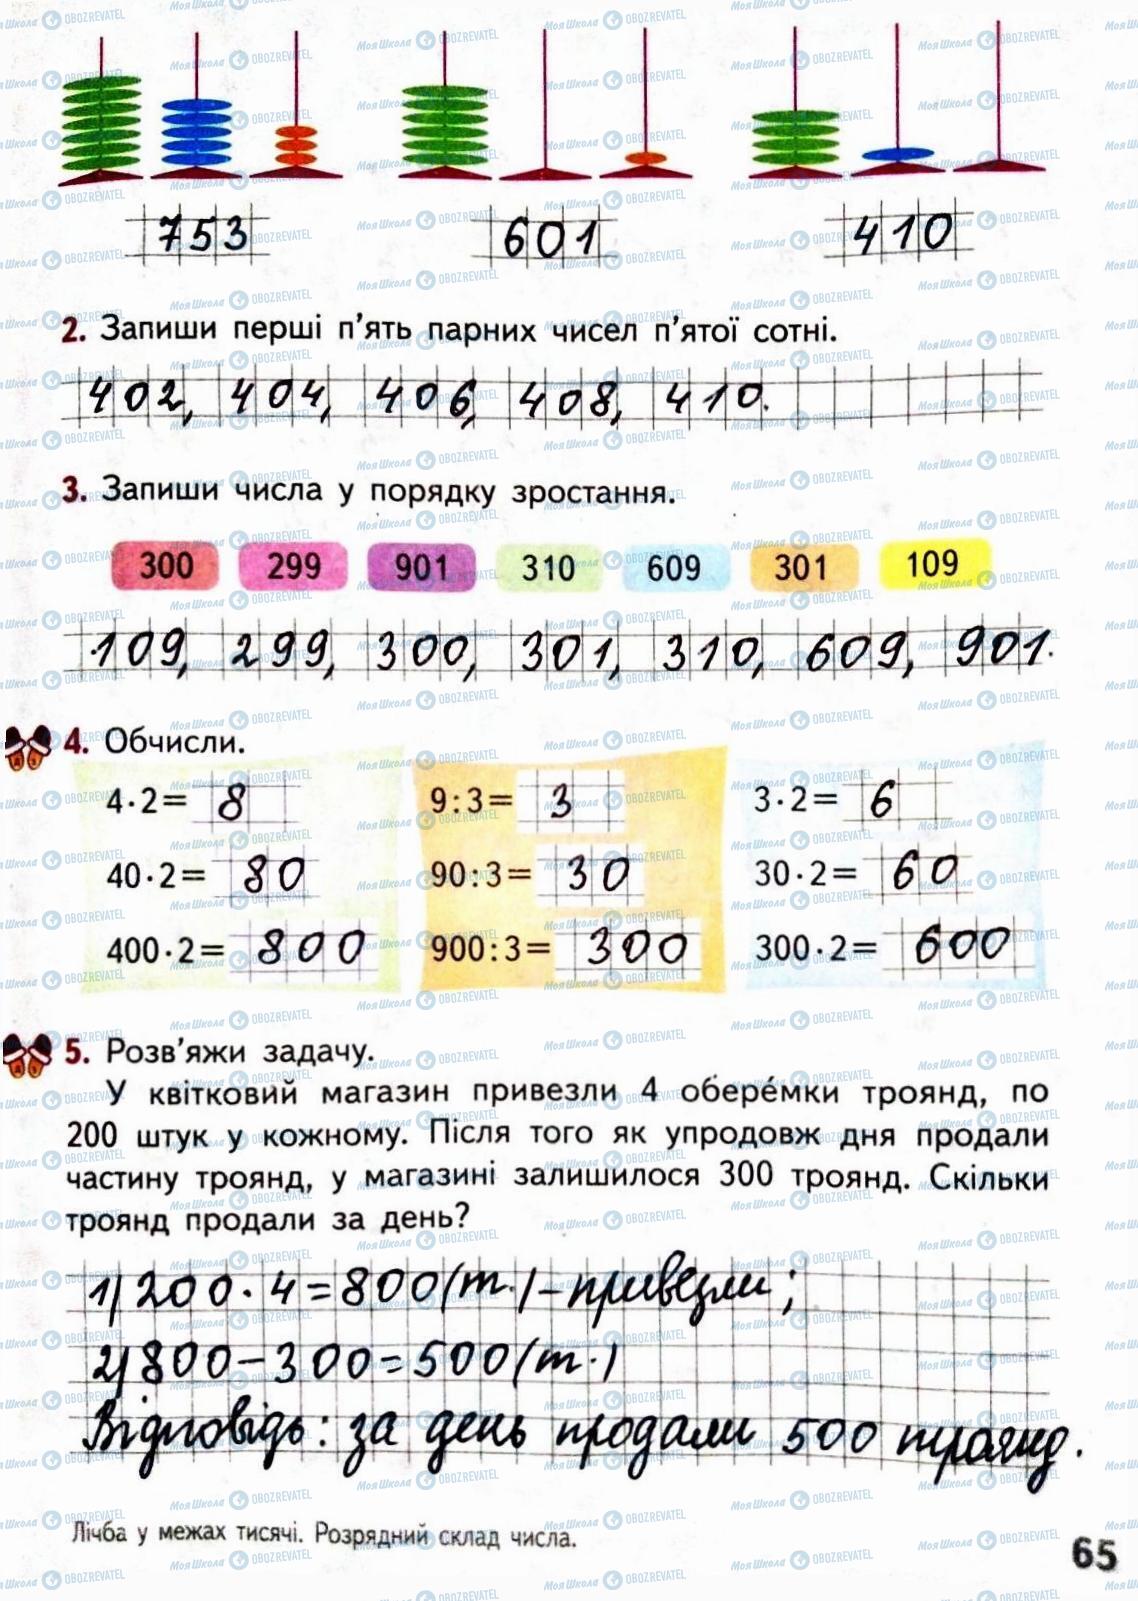 753 601 410
2. Запиши перші п'ять парних чисел п'ятої сотні.
402, 404, 406, 408, 410.
3. Запиши числа у порядку зростання.
300 299 901 310 609 301 109
109, 299, 300, 301, 310, 609, 901.
4. Обчисли.
4·2= 8 9:3= 3 3·2= 6
40·2= 80 90:3= 30 30·2= 60
400·2= 800 900:3= 300 300·2= 600
5. Розв'яжи задачу.
У квітковий магазин привезли 4 обере́мки троянд, по
200 штук у кожному. Після того як упродовж дня продали
частину троянд, у магазині залишилося 300 троянд. Скільки
троянд продали за день?
1) 200·4=800(т.)-привезли;
2) 800-300=500(т.)
Відповідь: за день продали 500 троянд.
Лічба у межах тисячі. Розрядний склад числа.
65
МояШкола OBOZREVATEL